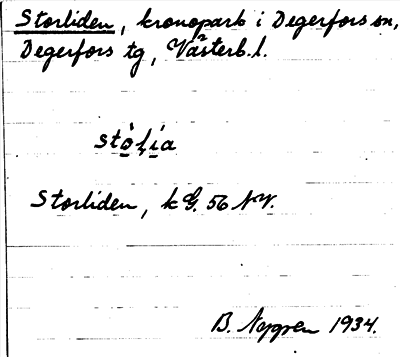 Storliden, kronopark i Degerfors sn,
Degerfors tg, Västerb.l.
Storliden, k G. 56 NV.
B. Nygren 1934.